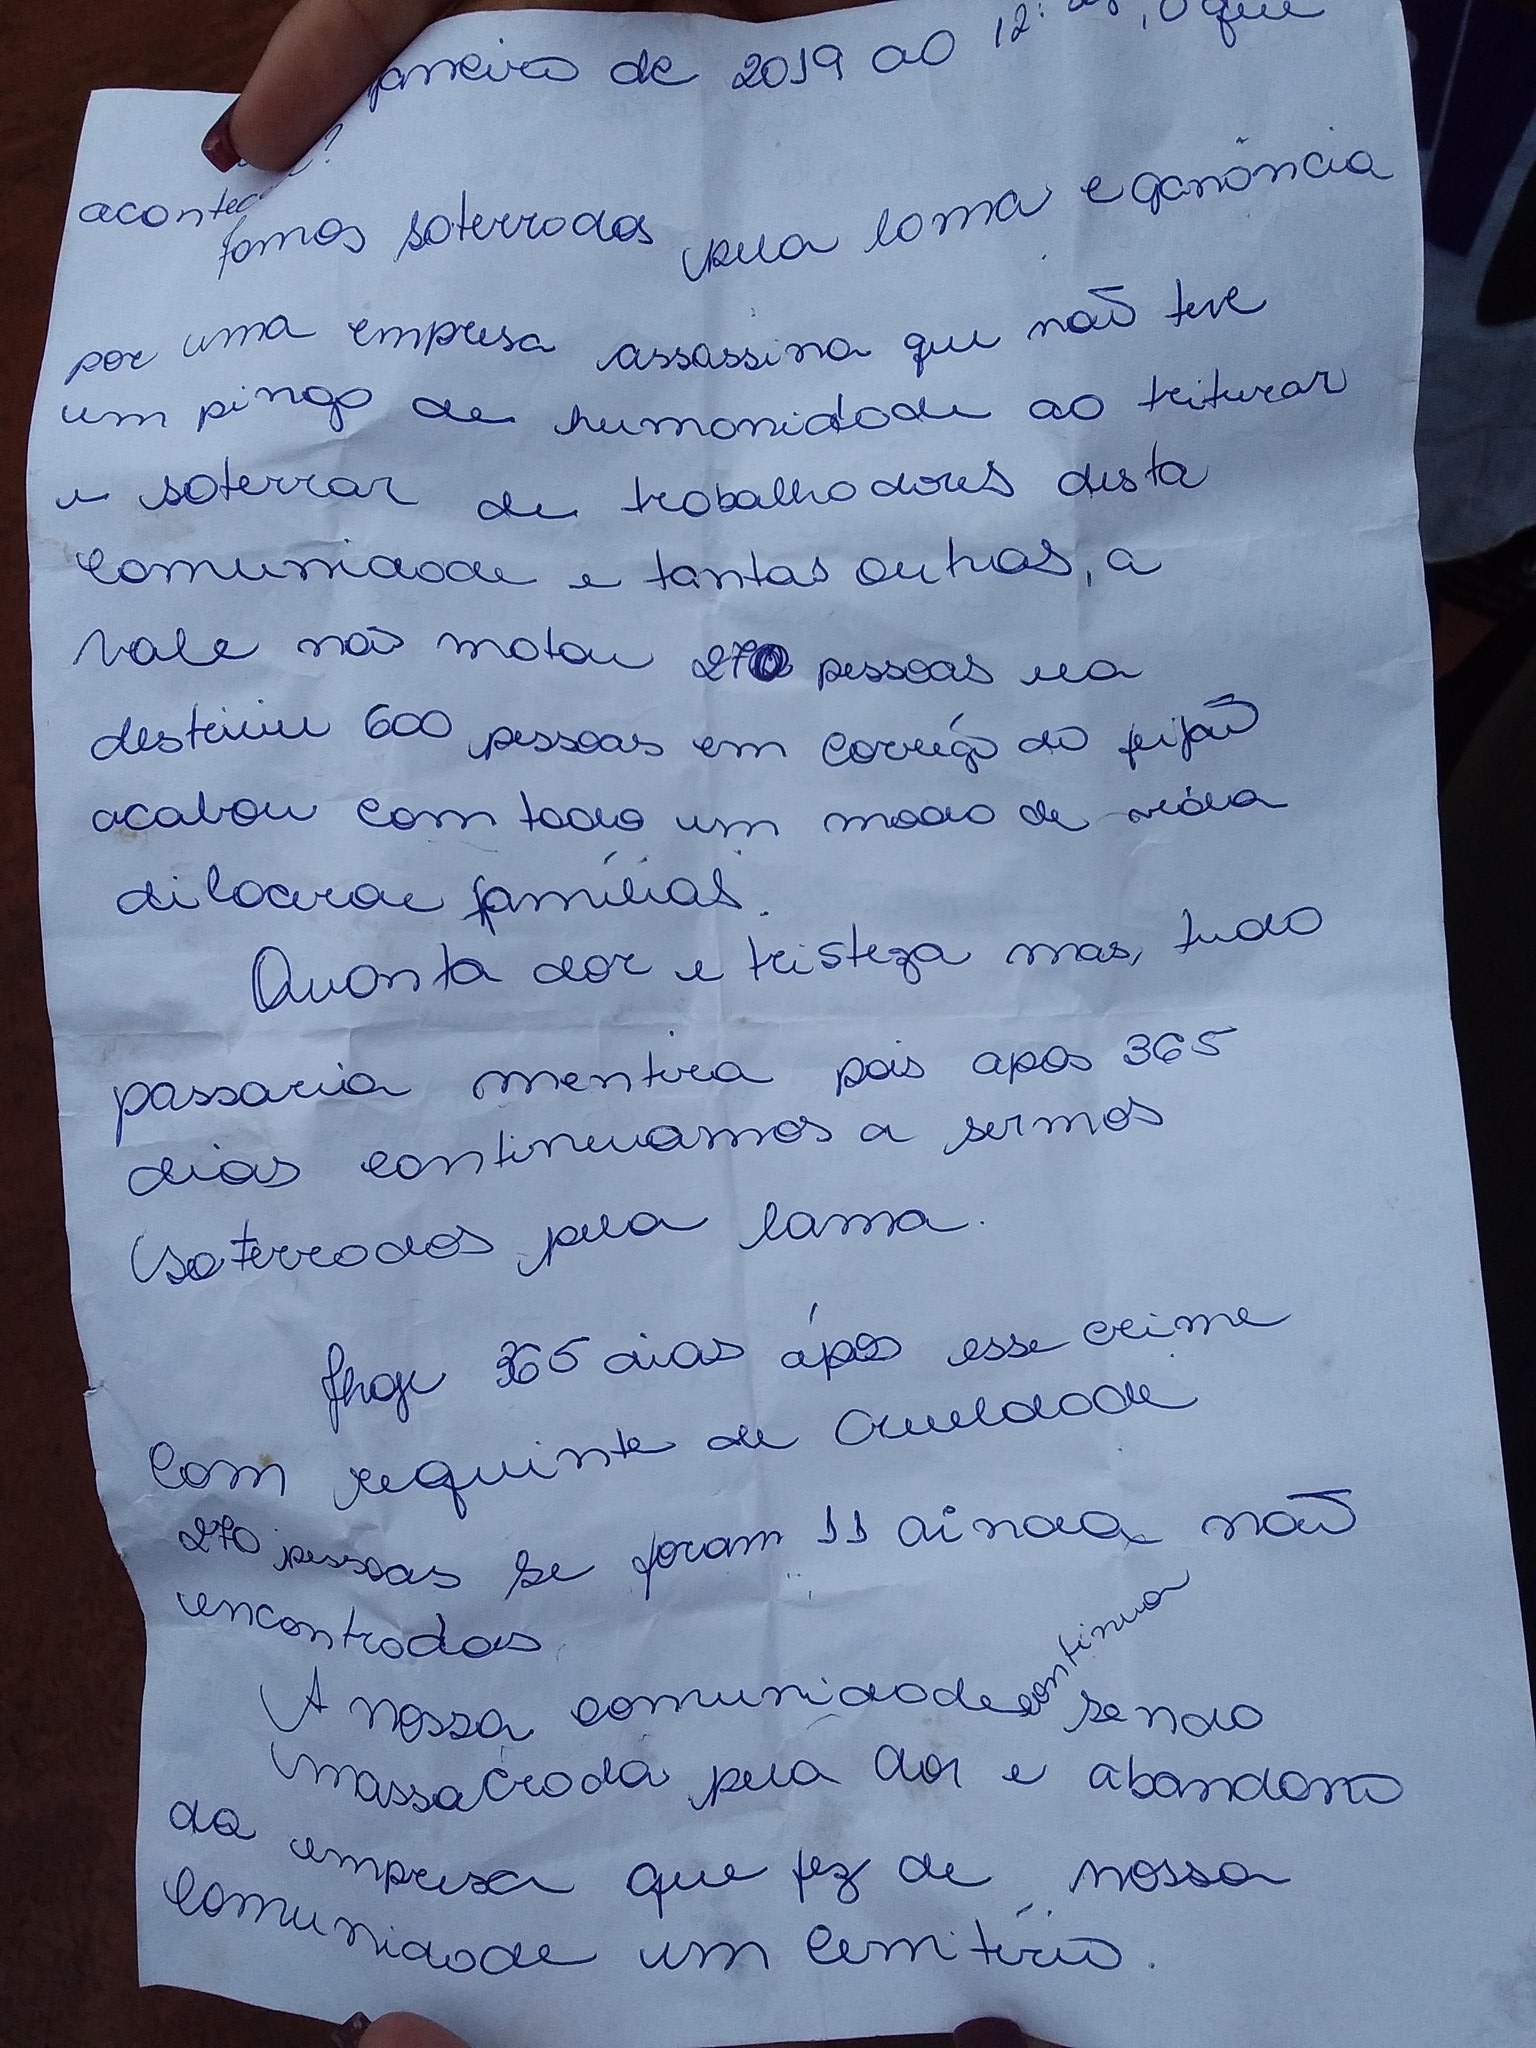 janeiro de 2019 ao 12: , o que
aconteceu?
fomos soterrados pela lama e ganância
por uma empresa assassina que não teve
um pingo de humanidade ao triturar
e soterrar de trabalhadores desta
comunidade e tantas outras, a
Vale não matou 270 pessoas ela
destruiu 600 pessoas em corrégo do feijão
acabou com todo um modo de vida
dilacerou famílias.
Quanta dor e tristeza mas, tudo
passaria mentira pois apos 365
dias continuamos a sermos
soterrados pela lama.
Hoje 365 dias ápos esse crime
com requinte de crueldade
270 pessoas se foram 11 ainda não
encontradas
A nossa comunidade continua sendo
massacrada pela dor e abandono
da empresa que fez de nossa
comunidade um cemitério.